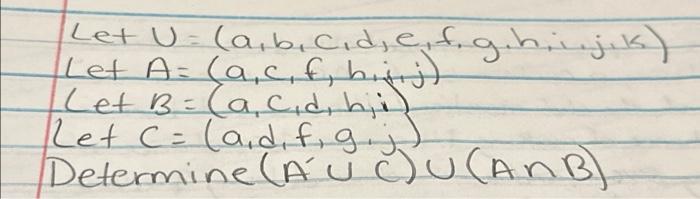 Let U = (a, b, c, d, e, f, g, h, i, j, k)
Let A = (a, c, f, h, i, j)
Let B = (a, c, d, h, i)
Let C = (a, d, f, g, j)
Determine (A' ∪ C) ∪ (A ∩ B)